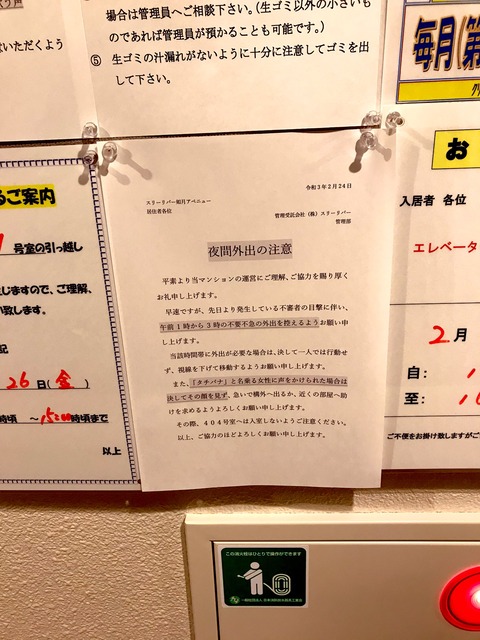 場合は管理員へご相談下さい。（生ゴミ以外の小さいも
のであれば管理員が預かることも可能です。）
⑤ 生ゴミの汁漏れがないように十分に注意してゴミを出
して下さい。
いただくよう
毎月(第
お
入居者 各位
エレベータ
2月
自：
至：
ご不便をお掛け致しますがご
るご案内
号室の引っ越し
生じますので、ご理解、
い致します。
記
26日(金)
時頃 ～15:00時頃まで
以上
令和3年2月24日
スリーリバー如月アベニュー
居住者各位
管理受託会社（株）スリーリバー
管理部
夜間外出の注意
平素より当マンションの運営にご理解、ご協力を賜り厚く
お礼申し上げます。
早速ですが、先日より発生している不審者の目撃に伴い、
午前1時から3時の不要不急の外出を控えるようお願い申
し上げます。
当該時間帯に外出が必要な場合は、決して一人では行動せ
ず、視線を下げて移動するようお願い申し上げます。
また、「タチバナ」と名乗る女性に声をかけられた場合は
決してその顔を見ず、急いで構外へ出るか、近くの部屋へ助
けを求めるようよろしくお願い申し上げます。
その際、404号室へは入室しないようご注意ください。
以上、ご協力のほどよろしくお願い申し上げます。
この消火栓はひとりで操作ができます